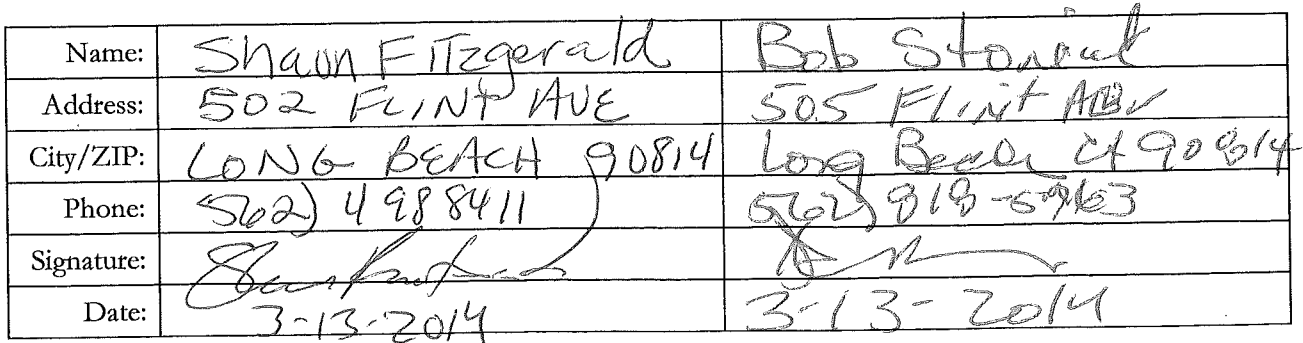 Name: Shaun FITzgerald Bob
Address: 502 FLINT AVE 505 FLINT
City/ZIP: LONG BEACH 90814 Long Beach CA 90814
Phone: 562) 4988411 562) 818-
Signature:
Date: 3-13-2014 3-13-2014